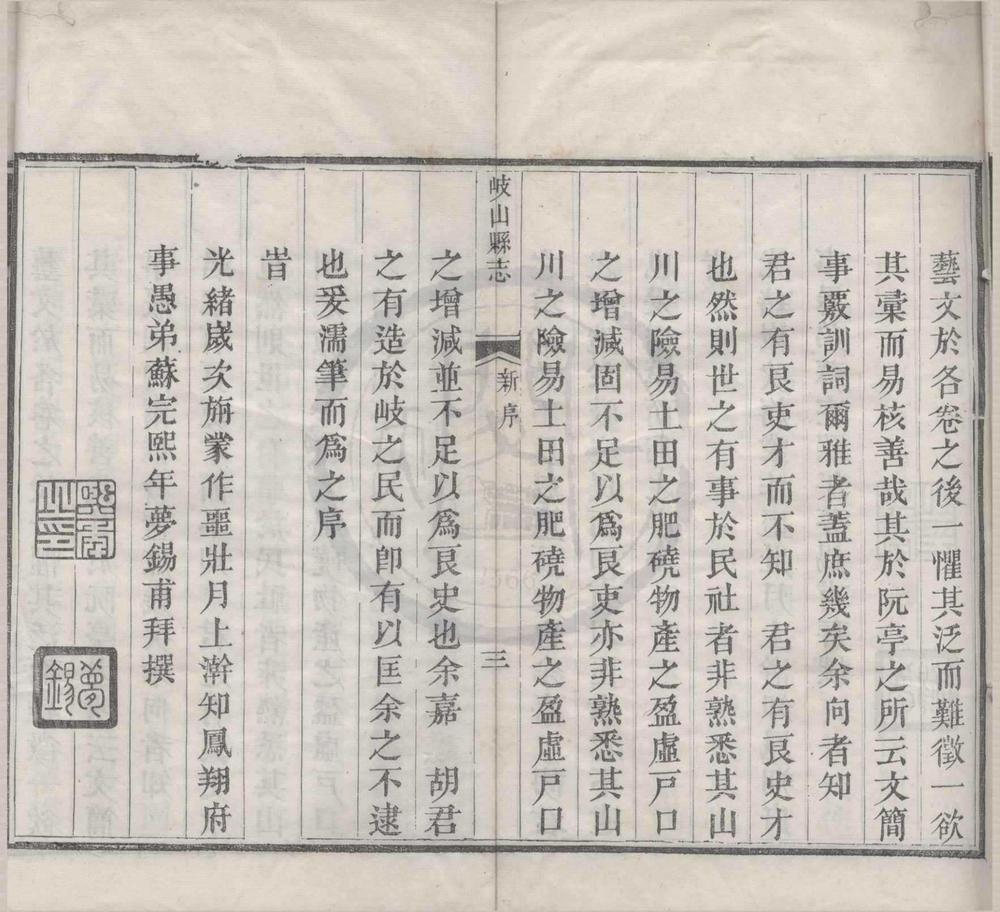 藝文於各卷之後一懼其泛而難徵一欲
其彙而易核善哉其於阮亭之所云文簡
事覈訓詞爾雅者蓋庶幾矣余向者知
君之有良吏才而不知　君之有良史才
也然則世之有事於民社者非熟悉其山
川之險易土田之肥磽物產之盈虛戶口
之增減固不足以爲良吏亦非熟悉其山
川之險易土田之肥磽物產之盈虛戶口
岐山縣志　新序　三
之增減並不足以爲良史也余嘉　胡君
之有造於岐之民而卽有以匡余之不逮
也爰濡筆而爲之序
旹
光緒歲次旃蒙作噩壯月上澣知鳳翔府
事愚弟蘇完熙年夢錫甫拜撰
熙年之印
夢錫